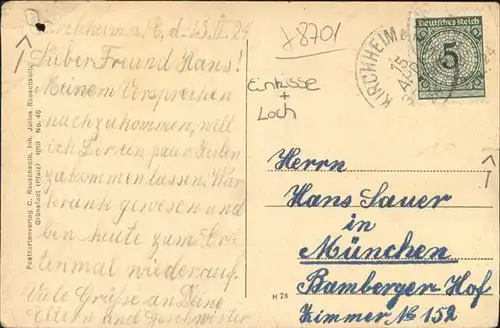 Kirchheim a/E, d. 13.IV.24
Lieber Freund Hans!
Meinem Versprechen
nachzukommen, will
ich Dir ein paar Zeilen
zukommen lassen. War
krank gewesen und
bin heute zum Er-
stenmal wieder auf.
Viele Grüße an Deine
Eltern und Geschwister
Postkartenverlag C. Rauschkolb, Inh. Julius Rauschkolb,
Grünstadt (Pfalz) 1913 No. 46
78701
Einrisse
+
Loch
KIRCHHEIM
15
APR
Deutsches Reich
5
Herrn
Hans Sauer
in
München
Bamberger-Hof
Zimmer No 152
H 78